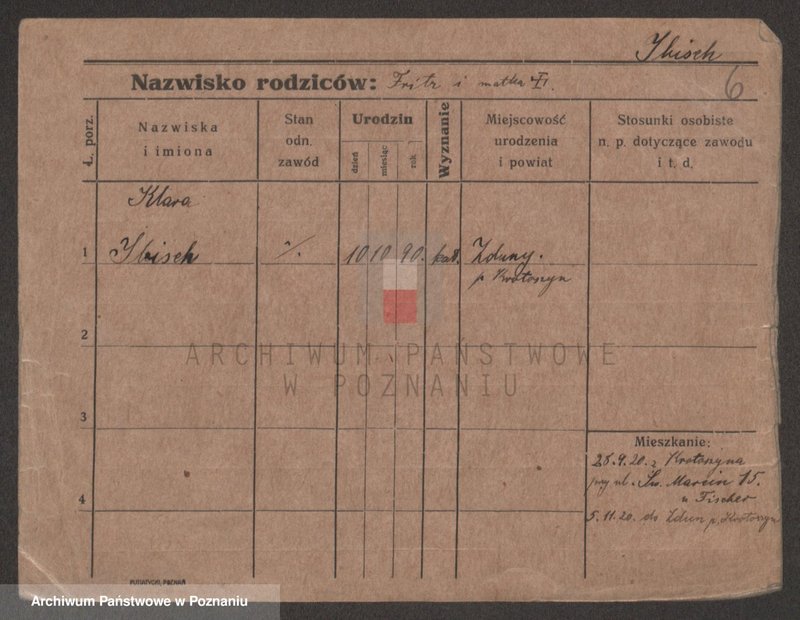 Ibisch
6
Nazwisko rodziców: Fritz i matka
Ł. porz.
Nazwiska
i imiona
Stan
odn.
zawód
Urodzin
dzień
miesiąc
rok
Wyznanie
Miejscowość
urodzenia
i powiat
Stosunki osobiste
n. p. dotyczące zawodu
i t. d.
Klara
1 Ibisch 10 10 90. kat. Zduny.
p Krotoszyn
2
ARCHIWUM PAŃSTWOWE
W POZNANIU
3
Mieszkanie:
28.9.20. z Krotoszyna
przy ul. Św. Marcin 15.
u Fischer
4
5.11.20. do Zdun p. Krotoszyn
PUTIATYCKI, POZNAŃ
Archiwum Państwowe w Poznaniu